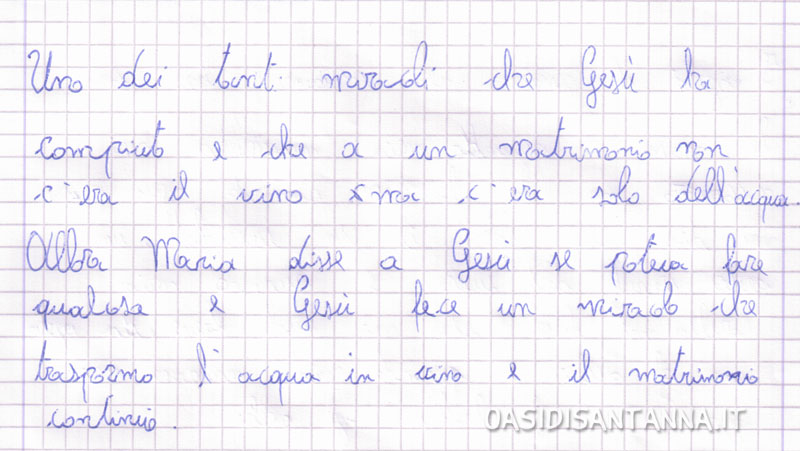 Uno dei tanti miracoli che Gesù ha
compiuto e che a un matrimonio non
c'era il vino ma c'era solo dell'acqua.
Allora Maria disse a Gesù se poteva fare
qualcosa e Gesù fece un miracolo che
trasformo l'acqua in vino e il matrimonio
continuo.
OASIDISANTANNA.IT